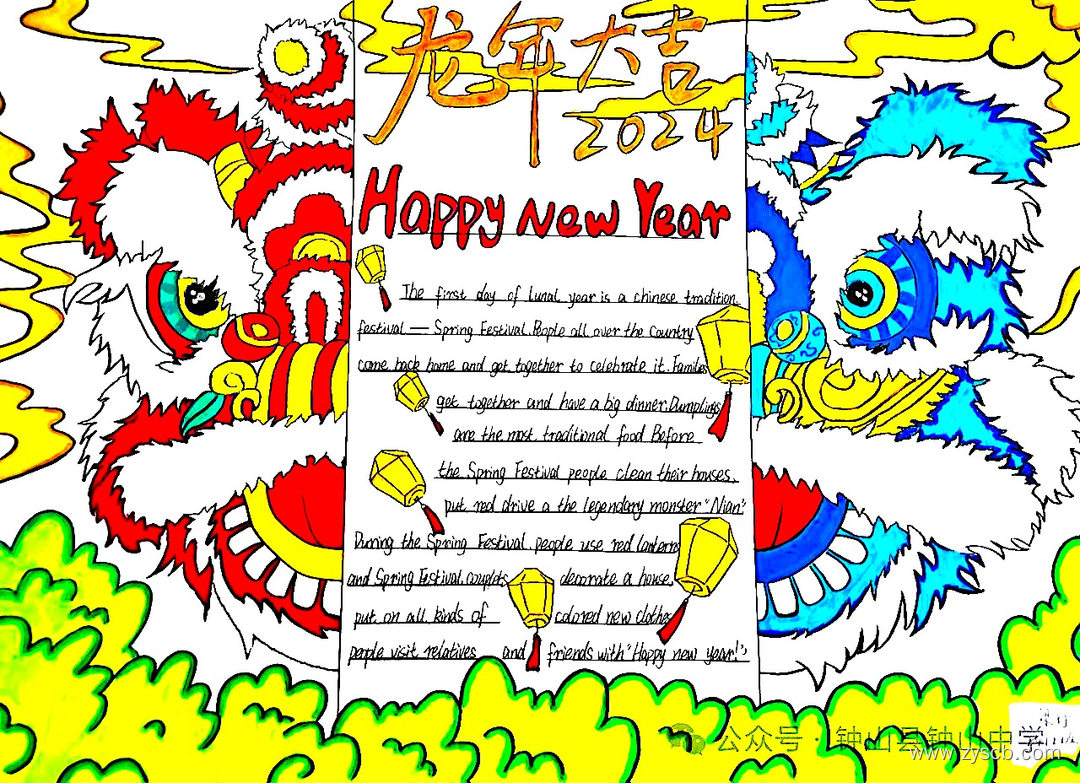 龙年大吉
2024
Happy New Year
The first day of lunal year is a chinese tradition
festival — Spring Festival. People all over the country
come back home and get together to celebrate it. Families
get together and have a big dinner. Dumplings
are the most traditional food Before
the Spring Festival people clean their houses,
put red drive a the legendary monster "Nian".
During the Spring Festival, people use red lanterns
and Spring Festival couplets decorate a house,
put on all kinds of colored new clothes
people visit relatives and friends with "Happy new year!"
公众号·钟山县钟山中学
www.zyscb.com